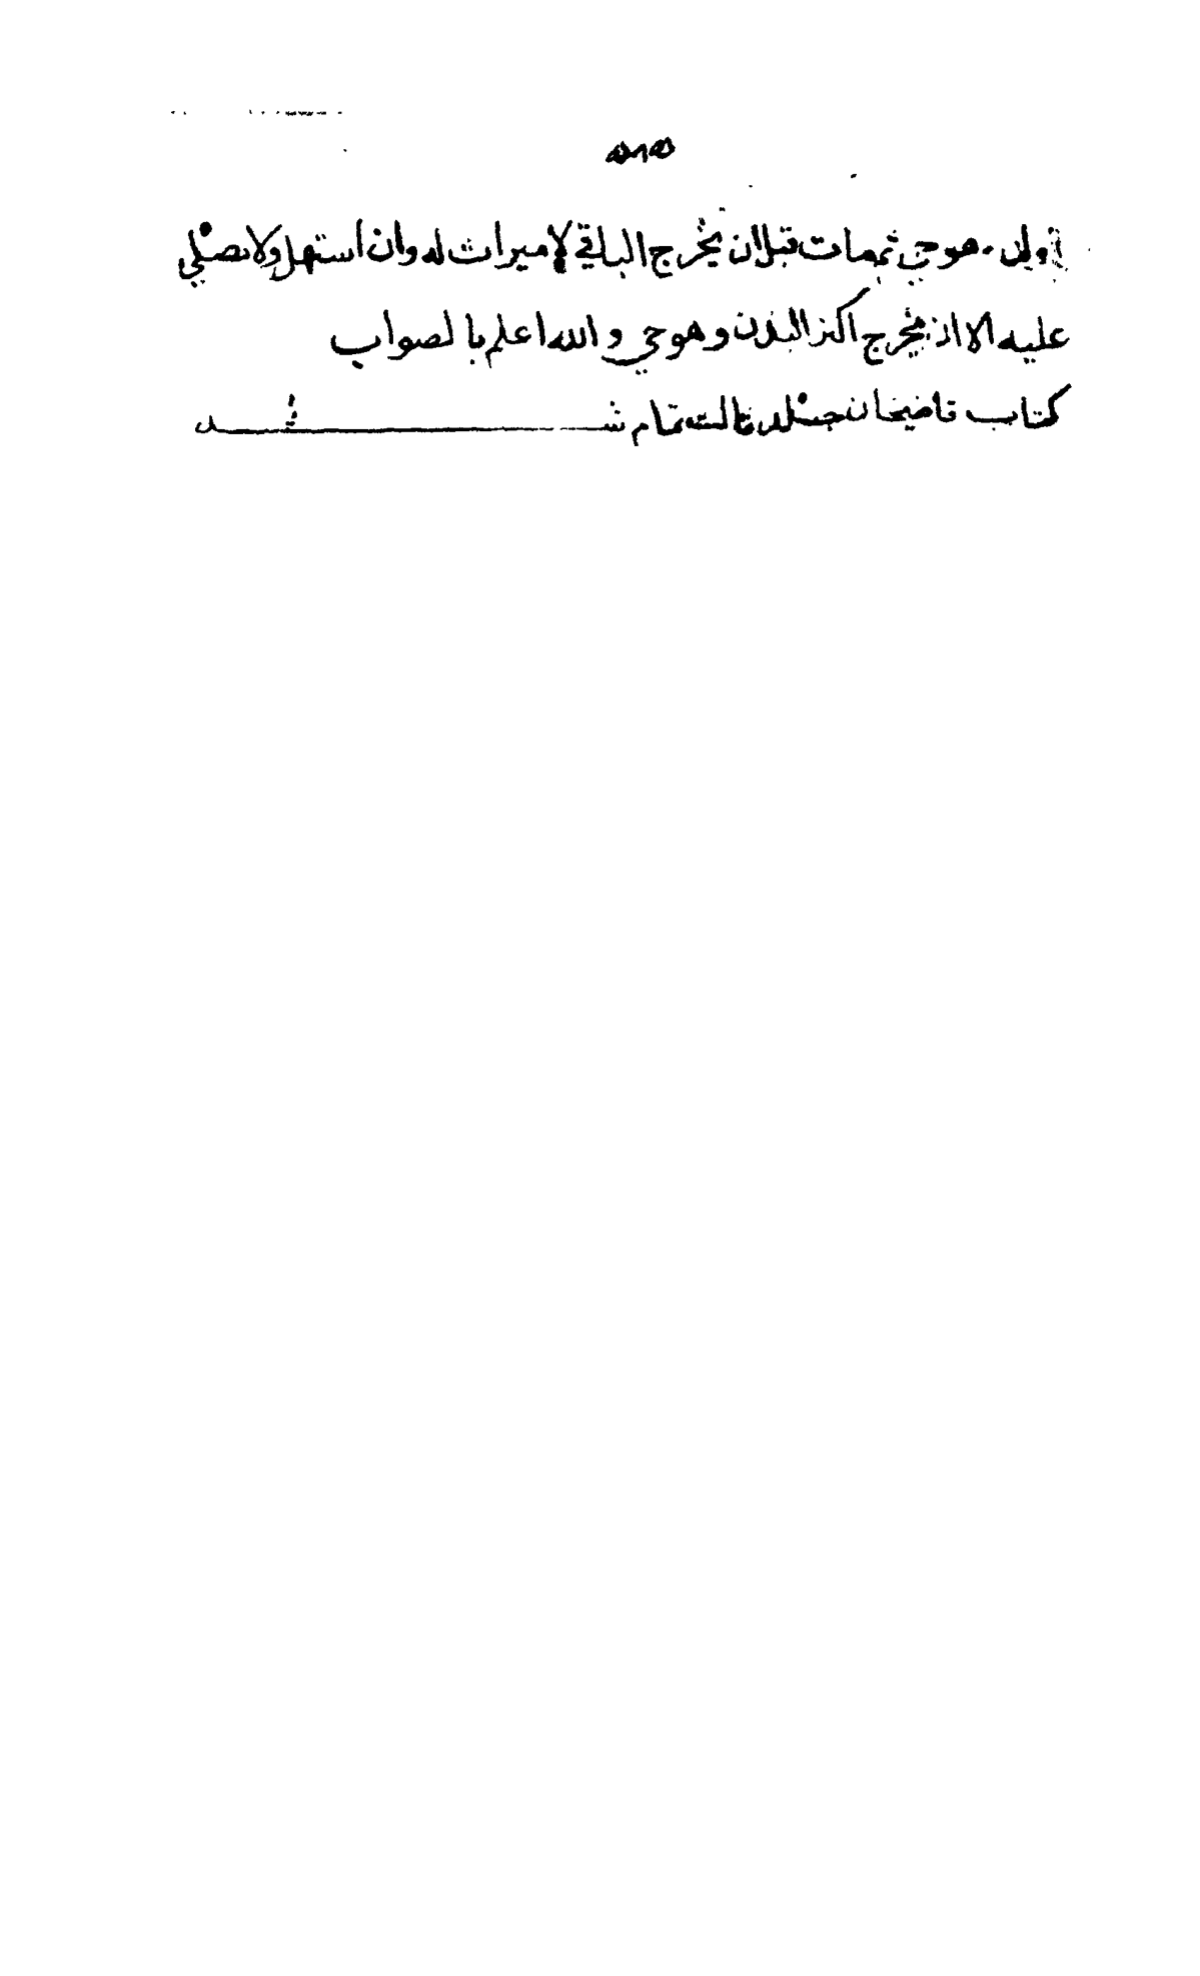 وهو حي ثم مات قبل ان يخرج الباقي لا ميراث له وان استهل ولا يصلي
عليه الا ان يخرج اكثر البدن وهو حي والله اعلم بالصواب
كتاب قاضيخان جلد ثالث تمام شد